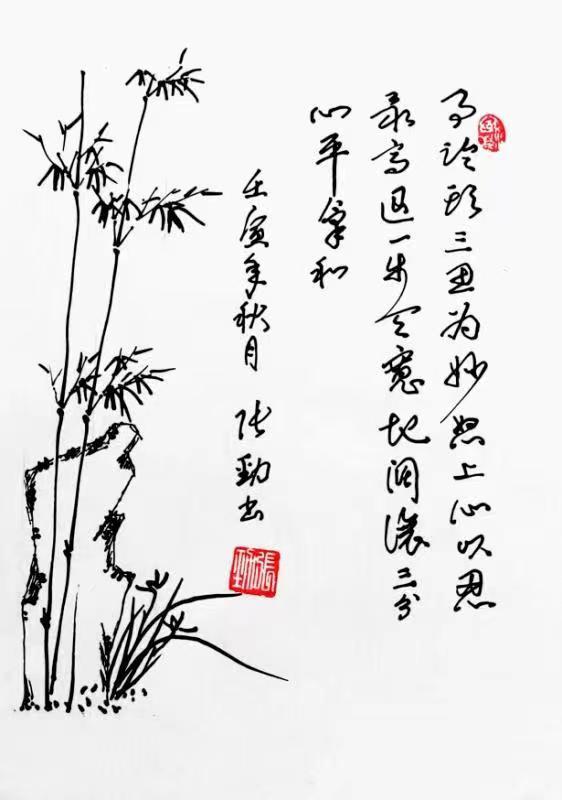 事临头三思为妙怒上心以忍
最高退一步天宽地阔讓三分
心平氣和
壬寅年秋月 张勁书
張勁